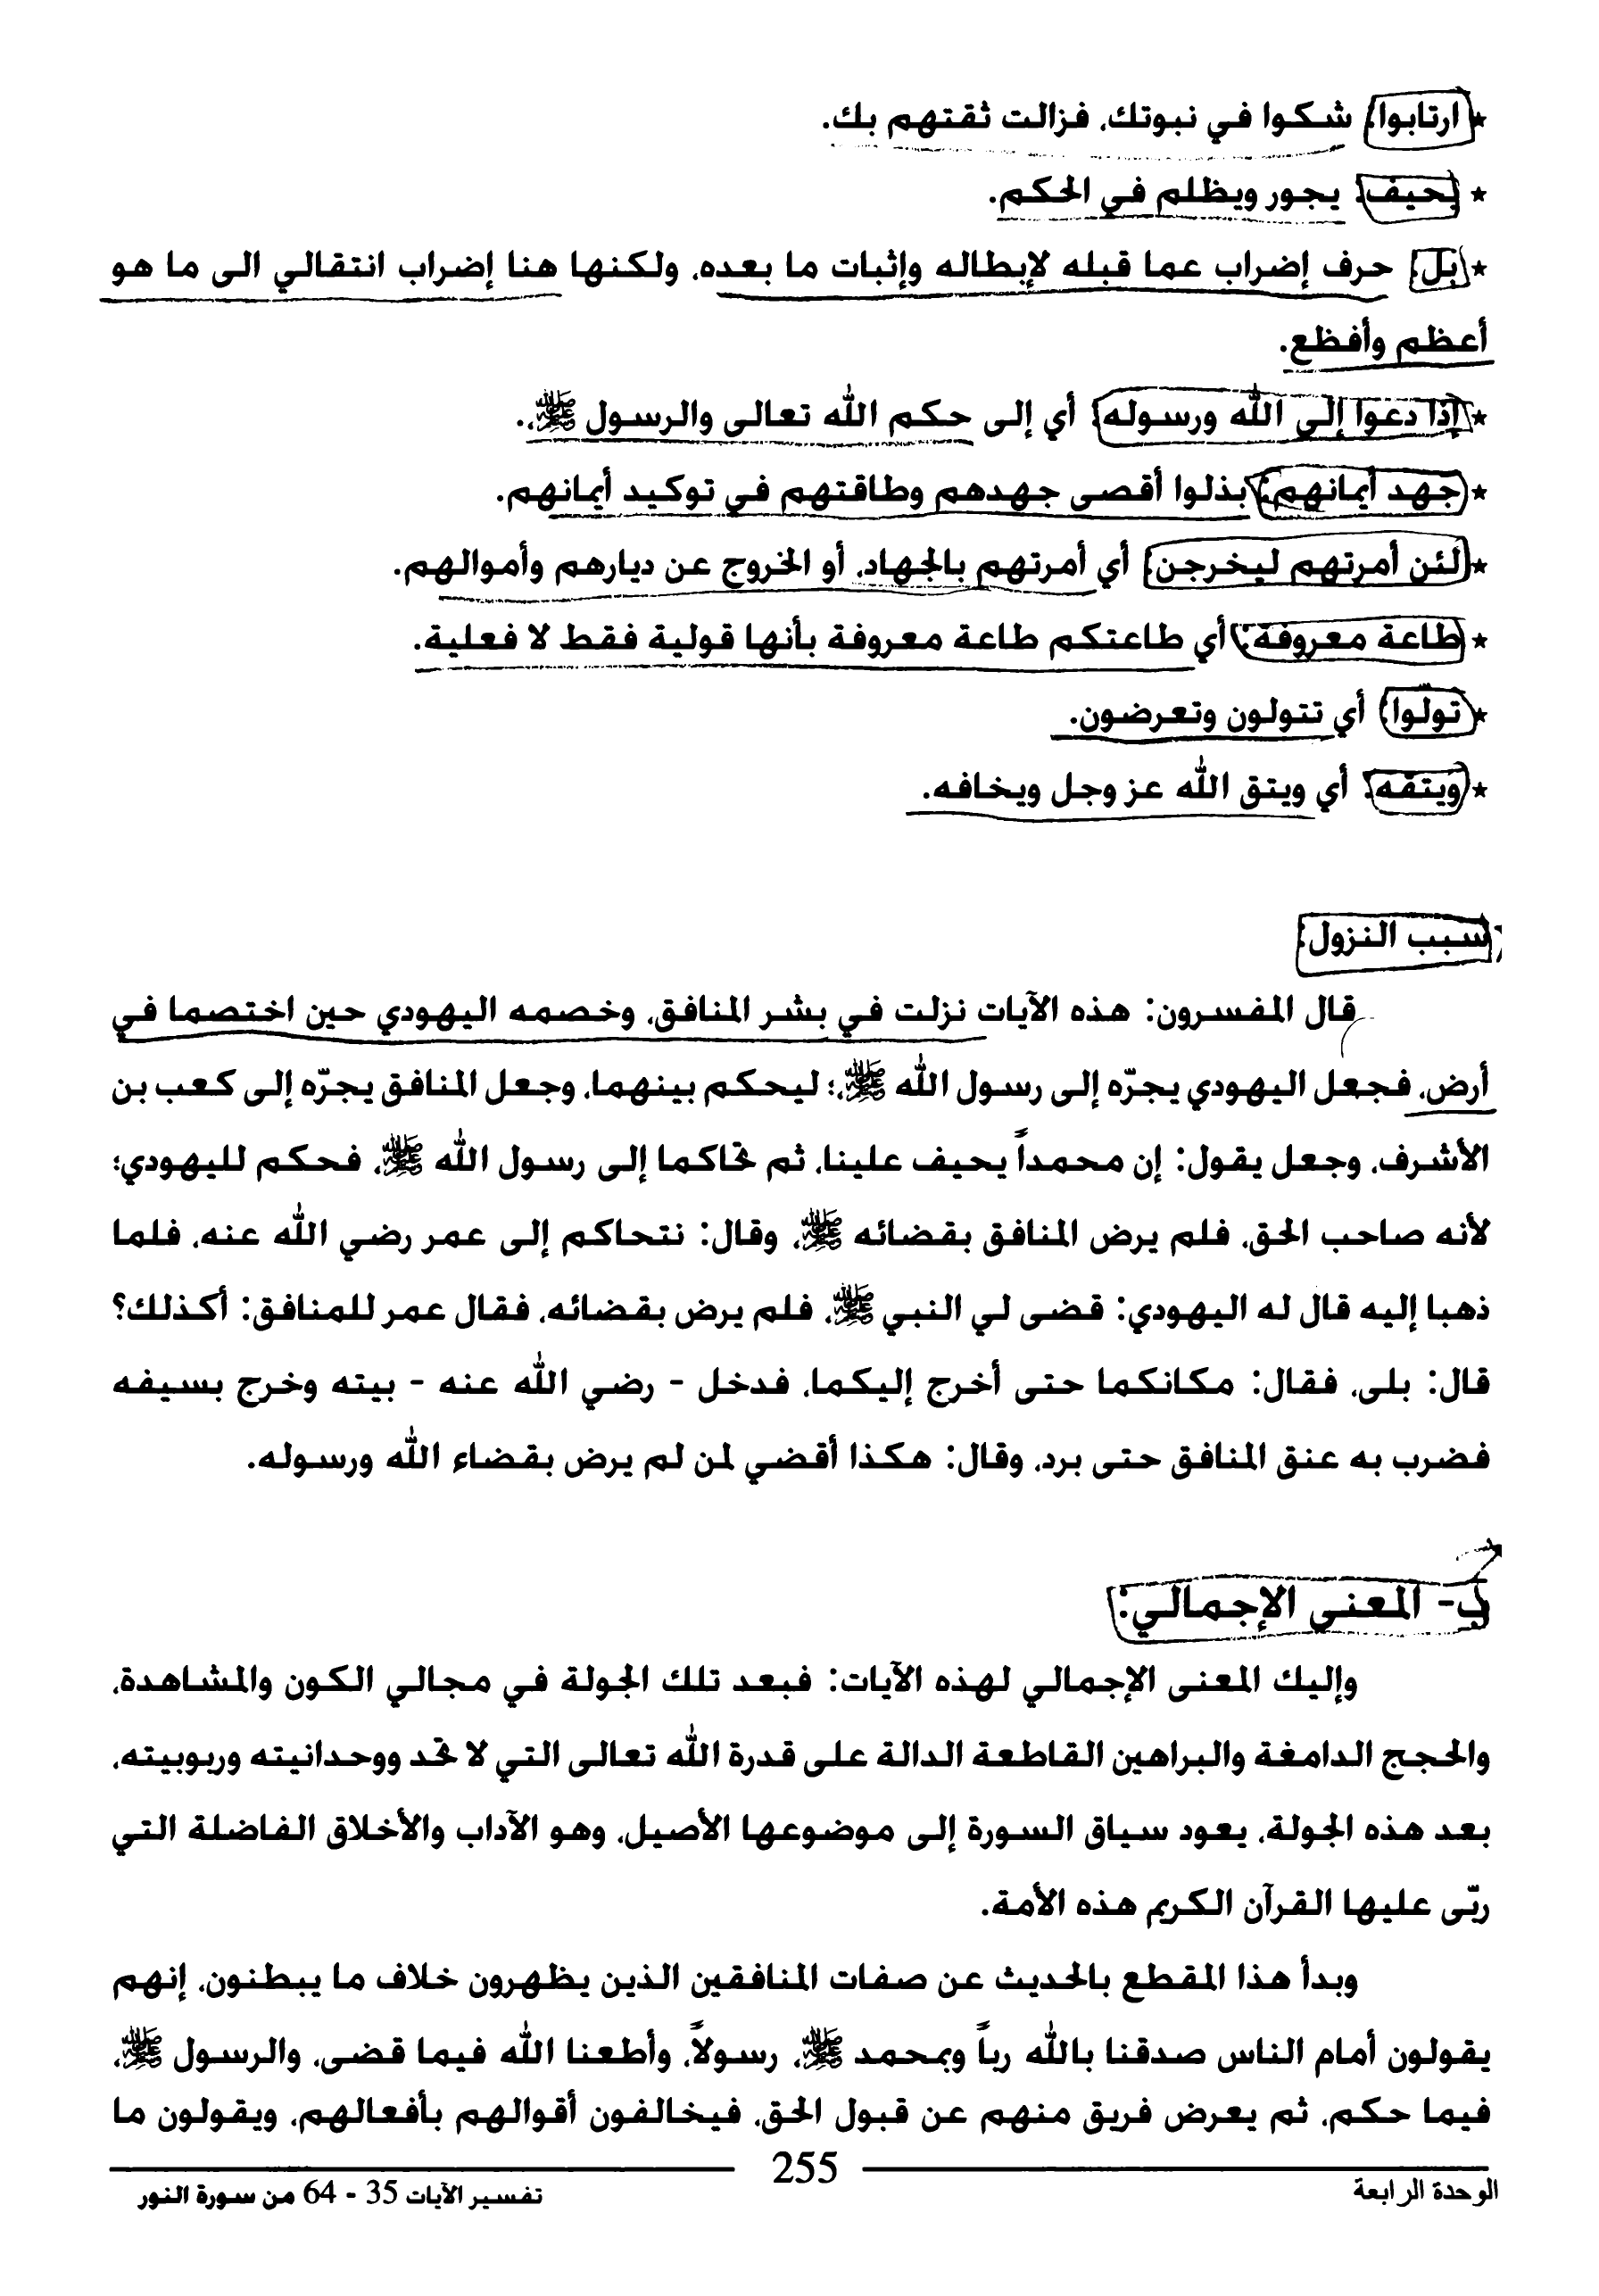 * ارتابوا: شكوا في نبوتك، فزالت ثقتهم بك.
* يحيف: يجور ويظلم في الحكم.
* بل: حرف إضراب عما قبله لإبطاله وإثبات ما بعده، ولكنها هنا إضراب انتقالي الى ما هو
أعظم وأفظع.
* إذا دعوا إلى الله ورسوله: أي إلى حكم الله تعالى والرسول ﷺ.
* جهد أيمانهم: بذلوا أقصى جهدهم وطاقتهم في توكيد أيمانهم.
* لئن أمرتهم ليخرجن: أي أمرتهم بالجهاد، أو الخروج عن ديارهم وأموالهم.
* طاعة معروفة: أي طاعتكم طاعة معروفة بأنها قولية فقط لا فعلية.
* تولّوا: أي تتولون وتعرضون.
* ويتقه: أي ويتق الله عز وجل ويخافه.
سبب النزول:
قال المفسرون: هذه الآيات نزلت في بشر المنافق، وخصمه اليهودي حين اختصما في
أرض، فجعل اليهودي يجرّه إلى رسول الله ﷺ؛ ليحكم بينهما، وجعل المنافق يجرّه إلى كعب بن
الأشرف، وجعل يقول: إن محمداً يحيف علينا، ثم تحاكما إلى رسول الله ﷺ، فحكم لليهودي؛
لأنه صاحب الحق، فلم يرض المنافق بقضائه ﷺ، وقال: نتحاكم إلى عمر رضي الله عنه، فلما
ذهبا إليه قال له اليهودي: قضى لي النبي ﷺ، فلم يرض بقضائه، فقال عمر للمنافق: أكذلك؟
قال: بلى، فقال: مكانكما حتى أخرج إليكما، فدخل - رضي الله عنه - بيته وخرج بسيفه
فضرب به عنق المنافق حتى برد، وقال: هكذا أقضي لمن لم يرض بقضاء الله ورسوله.
ب- المعنى الإجمالي:
وإليك المعنى الإجمالي لهذه الآيات: فبعد تلك الجولة في مجالي الكون والمشاهدة،
والحجج الدامغة والبراهين القاطعة الدالة على قدرة الله تعالى التي لا تحد ووحدانيته وربوبيته،
بعد هذه الجولة، يعود سياق السورة إلى موضوعها الأصيل، وهو الآداب والأخلاق الفاضلة التي
ربّى عليها القرآن الكريم هذه الأمة.
وبدأ هذا المقطع بالحديث عن صفات المنافقين الذين يظهرون خلاف ما يبطنون، إنهم
يقولون أمام الناس صدقنا بالله رباً وبمحمد ﷺ، رسولاً، وأطعنا الله فيما قضى، والرسول ﷺ،
فيما حكم، ثم يعرض فريق منهم عن قبول الحق، فيخالفون أقوالهم بأفعالهم، ويقولون ما
255
الوحدة الرابعة
تفسير الآيات 35 - 64 من سورة النور